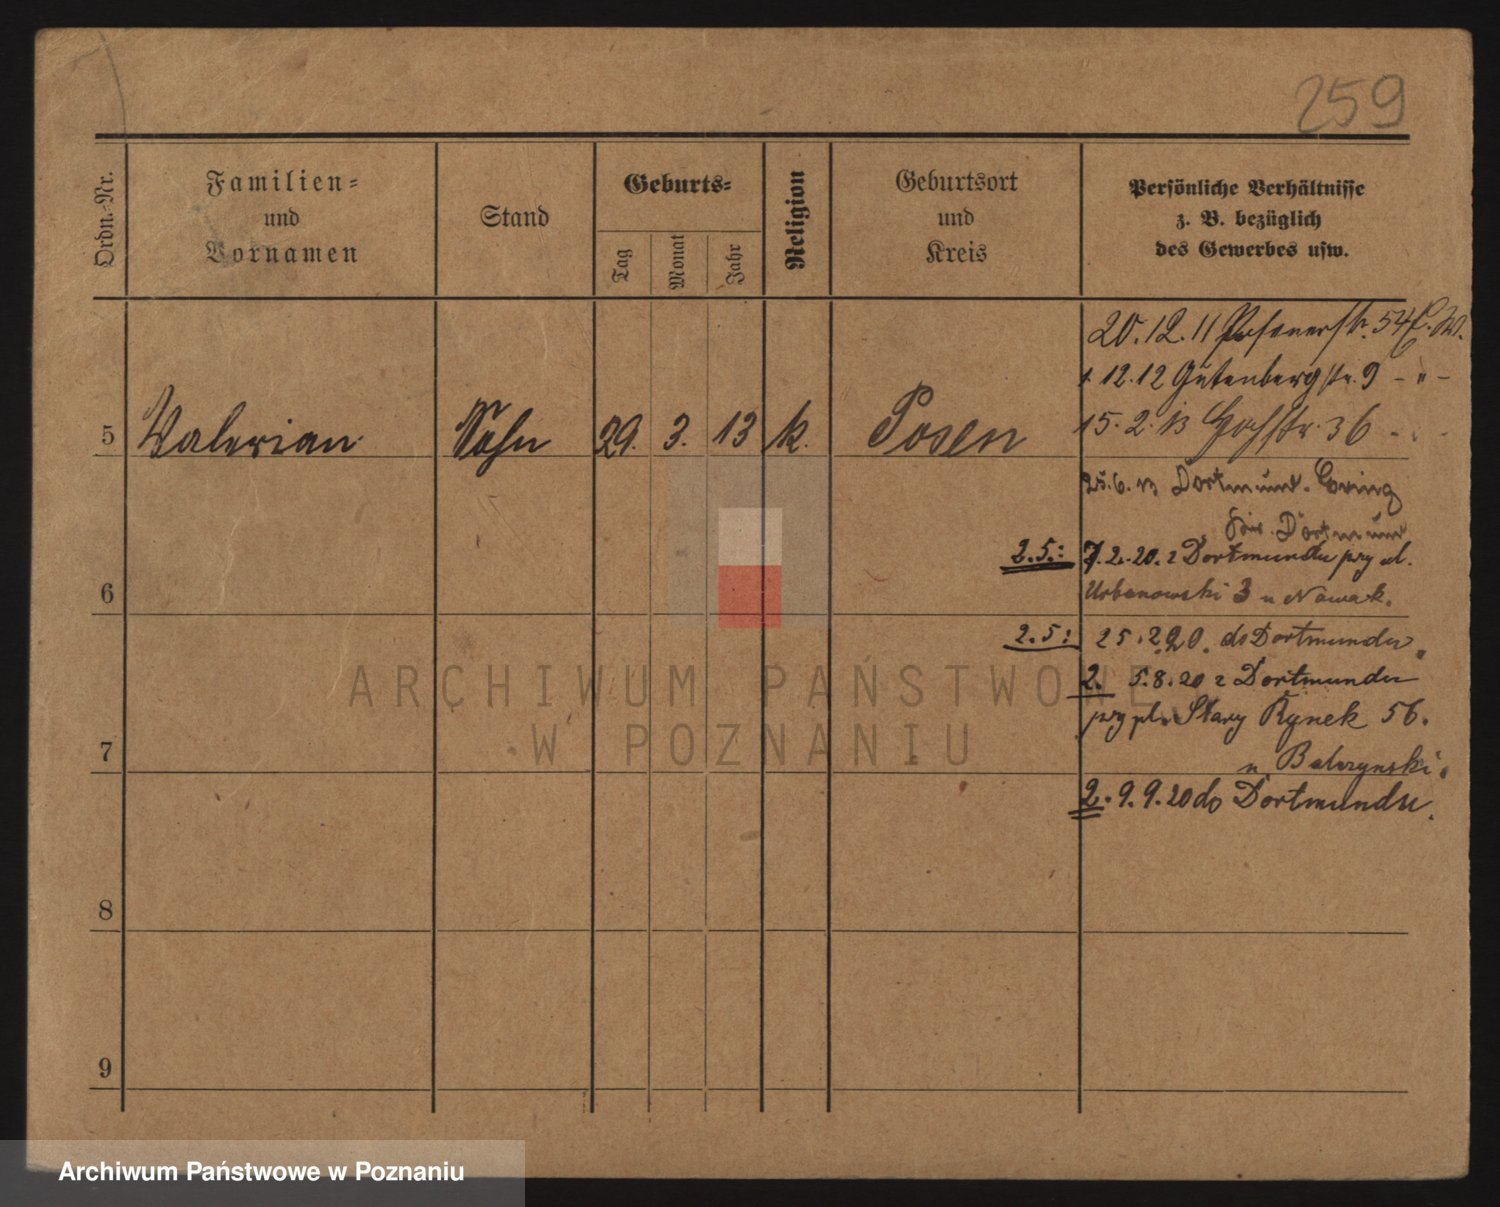 259
Ordn.-Nr.
Familien-
und
Vornamen
Stand
Geburts-
Tag
Monat
Jahr
Religion
Geburtsort
und
Kreis
Persönliche Verhältnisse
z. B. bezüglich
des Gewerbes usw.
20.12.11 Posenerstr. 54
1.12.12 Gutenbergstr. 9 - " -
5 Valerian Sohn 29. 3. 13 k. Posen
15.2.13 36
25.6.13 Dortmund. Eving
Dortmund
2.5.: 7.2.20. z Dortmundu przy ul.
6
Urbanowski 3 u Nowak.
2.5: 25.2.20. do Dortmundu.
2. 5.8.20 z Dortmundu
przy pl. Stary Rynek 56.
7
u
2. 9.9.20 do Dortmundu.
8
9
ARCHIWUM PAŃSTWOWE
W POZNANIU
Archiwum Państwowe w Poznaniu